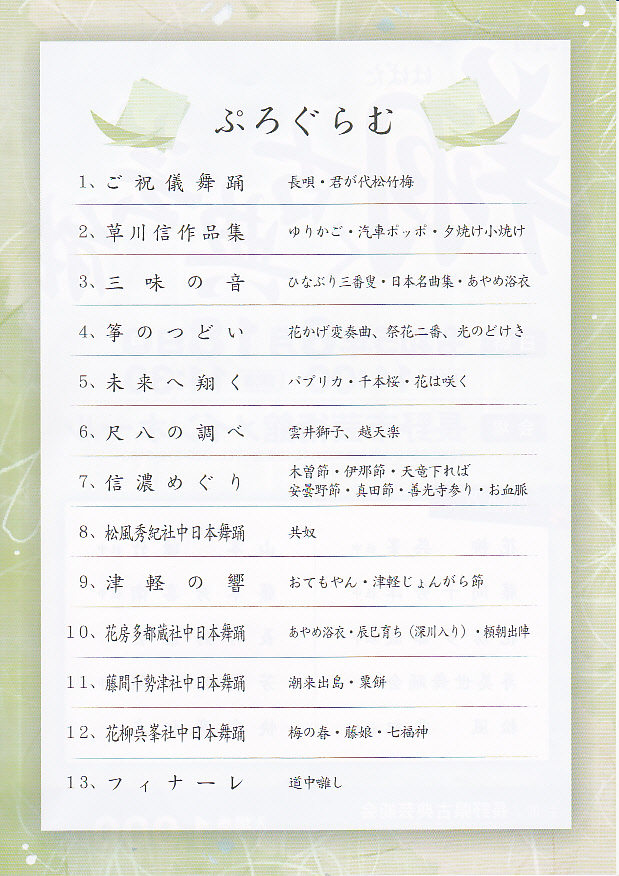 ぷろぐらむ
1、ご祝儀舞踊 長唄・君が代松竹梅
2、草川信作品集 ゆりかご・汽車ポッポ・夕焼け小焼け
3、三味の音 ひなぶり三番叟・日本名曲集・あやめ浴衣
4、箏のつどい 花かげ変奏曲、祭花二番、光のどけき
5、未来へ翔く パプリカ・千本桜・花は咲く
6、尺八の調べ 雲井獅子、越天楽
7、信濃めぐり 木曽節・伊那節・天竜下れば
安曇野節・真田節・善光寺参り・お血脈
8、松風秀紀社中日本舞踊 共奴
9、津軽の響 おてもやん・津軽じょんがら節
10、花房多都蔵社中日本舞踊 あやめ浴衣・辰巳育ち（深川入り）・頼朝出陣
11、藤間千勢津社中日本舞踊 潮来出島・粟餅
12、花柳呉峯社中日本舞踊 梅の春・藤娘・七福神
13、フィナーレ 道中囃し